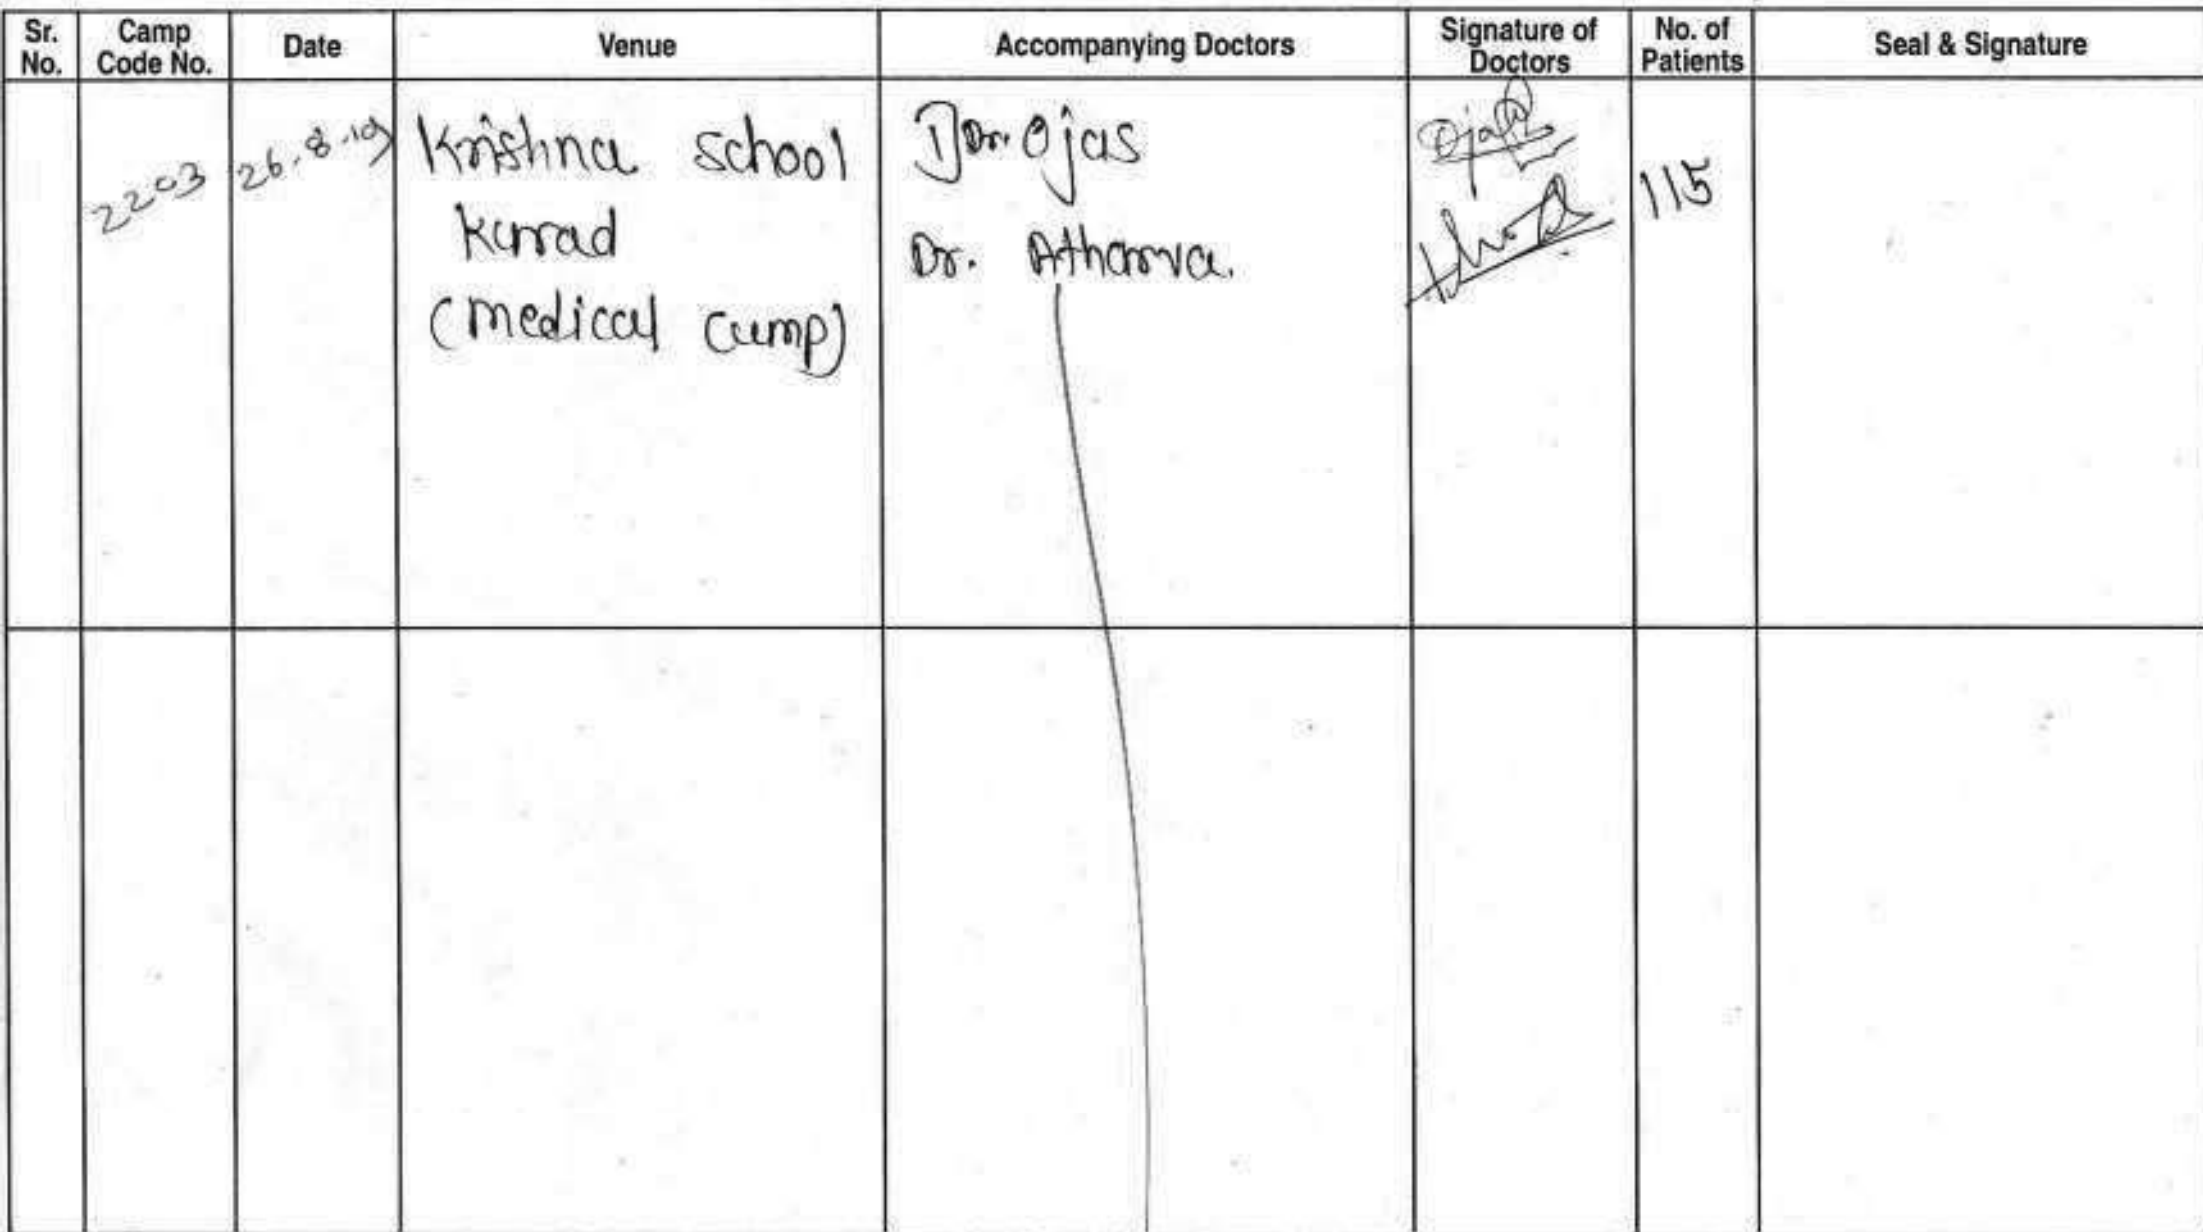 Sr. No.
Camp Code No.
Date
Venue
Accompanying Doctors
Signature of Doctors
No. of Patients
Seal & Signature
2203
26.8.19
Krishna school
Karad
(medical camp)
Dr. Ojas
Dr. Atharva.
Ojas
115